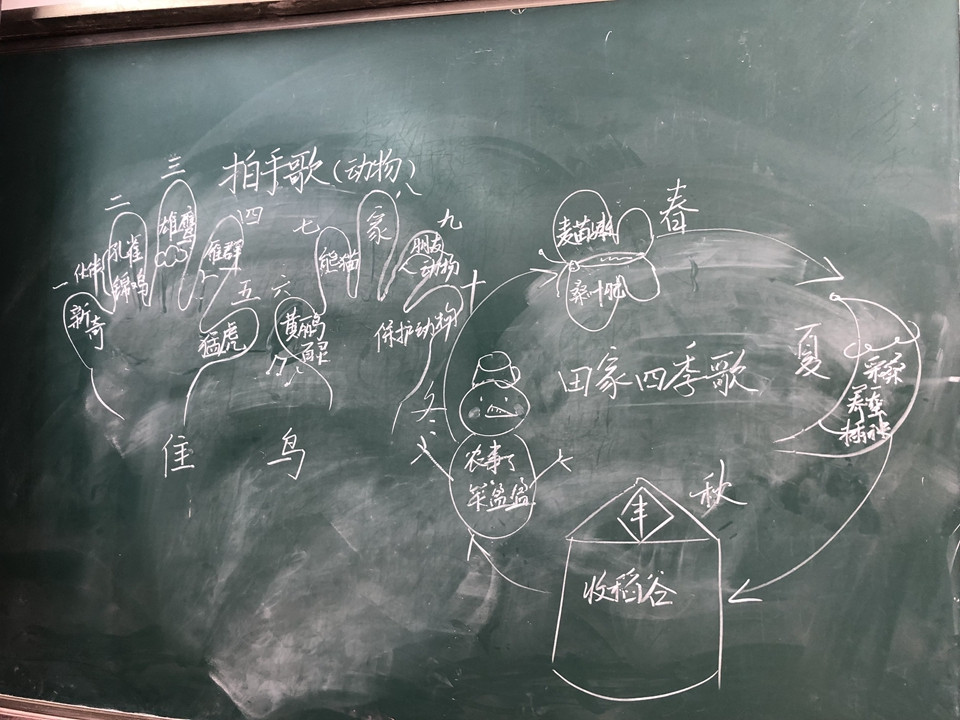 拍手歌（动物）
一
新奇
伙伴
二
孔雀
锦鸡
三
雄鹰
四
雁群
五
猛虎
六
黄鹂
七
熊猫
八
家
九
朋友
动物
十
保护动物
隹
鸟
田家四季歌
春
麦苗嫩
桑叶肥
夏
采桑
养蚕
插秧
秋
丰
收稻谷
冬
农事了
笑盈盈